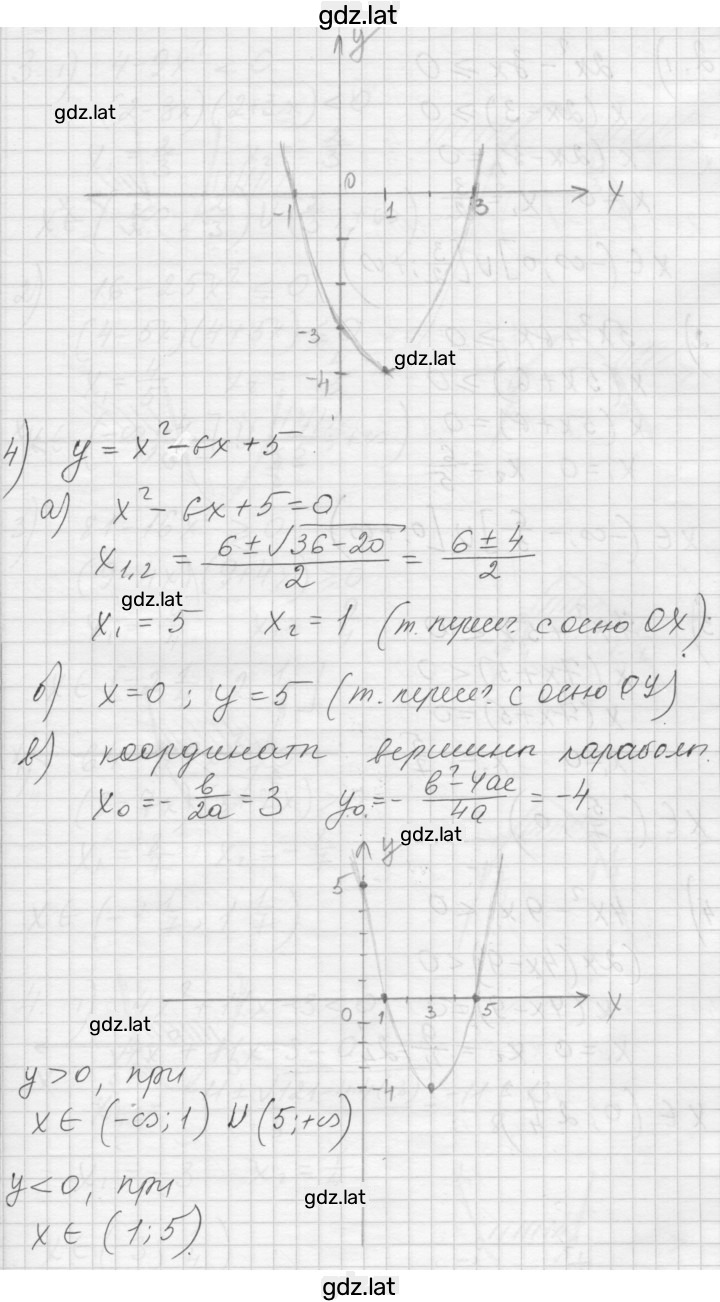 gdz.lat
y
gdz.lat
0
-1 1 3 x
-3
gdz.lat
-4
4) y = x² - 6x + 5
а) x² - 6x + 5 = 0
x₁,₂ = (6 ± √(36 - 20))/2 = (6 ± 4)/2
gdz.lat
x₁ = 5 x₂ = 1 (т. перес. с осью OX)
б) x = 0 ; y = 5 (т. перес. с осью OY)
в) координаты вершины параболы.
x₀ = - в/2a = 3 y₀ = - (в² - 4ac)/4a = -4
gdz.lat
y
5
0 1 3 5 x
gdz.lat
-4
y > 0, при
x ∈ (-∞; 1) ∪ (5; +∞)
y < 0, при
gdz.lat
x ∈ (1; 5)
gdz.lat